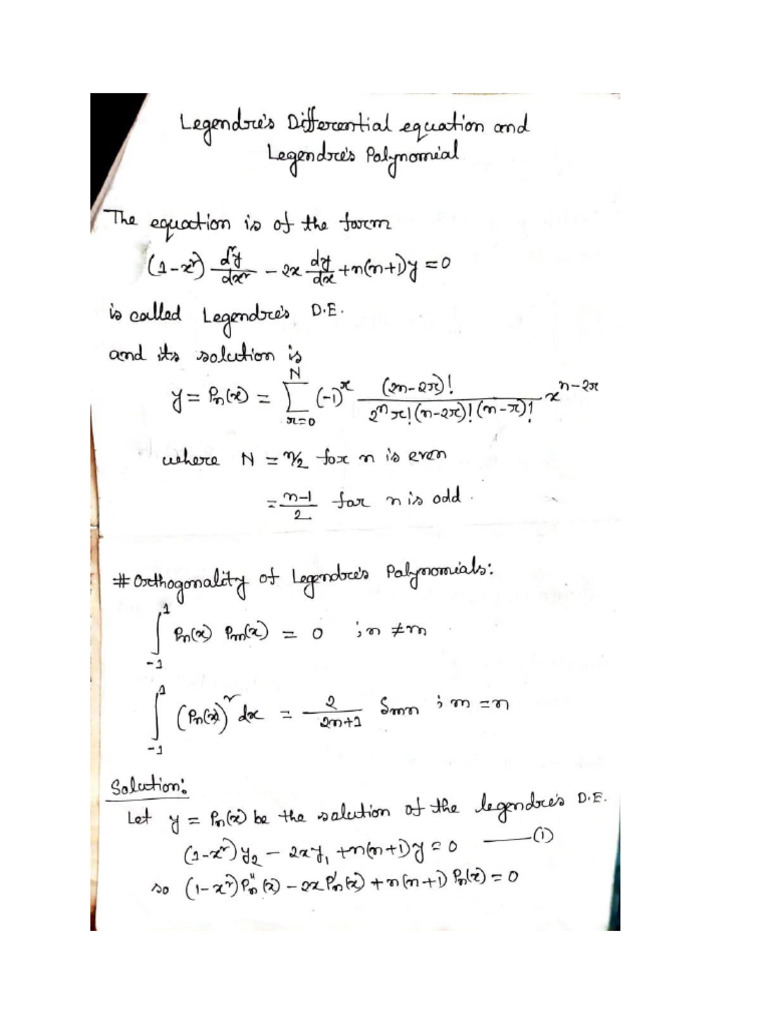 Legendre's Differential equation and
Legendre's Polynomial
The equation is of the form
(1-x²) d²y/dx² - 2x dy/dx + n(n+1)y = 0
is called Legendre's D.E.
and its solution is
y = Pn(x) = Σ_{r=0}^{N} (-1)^r (2n-2r)! / 2^n r! (n-2r)! (n-r)! x^{n-2r}
where N = n/2 for n is even
= n-1/2 for n is odd.
# Orthogonality of Legendre's Polynomials:
∫_{-1}^{1} Pn(x) Pm(x) = 0 ; n ≠ m
∫_{-1}^{1} (Pn(x))² dx = 2/2n+1 δmn ; m = n
Solution:
Let y = Pn(x) be the solution of the legendre's D.E.
(1-x²)y₂ - 2xy₁ + n(n+1)y = 0 —— (1)
so (1-x²)Pn''(x) - 2xPn'(x) + n(n+1) Pn(x) = 0